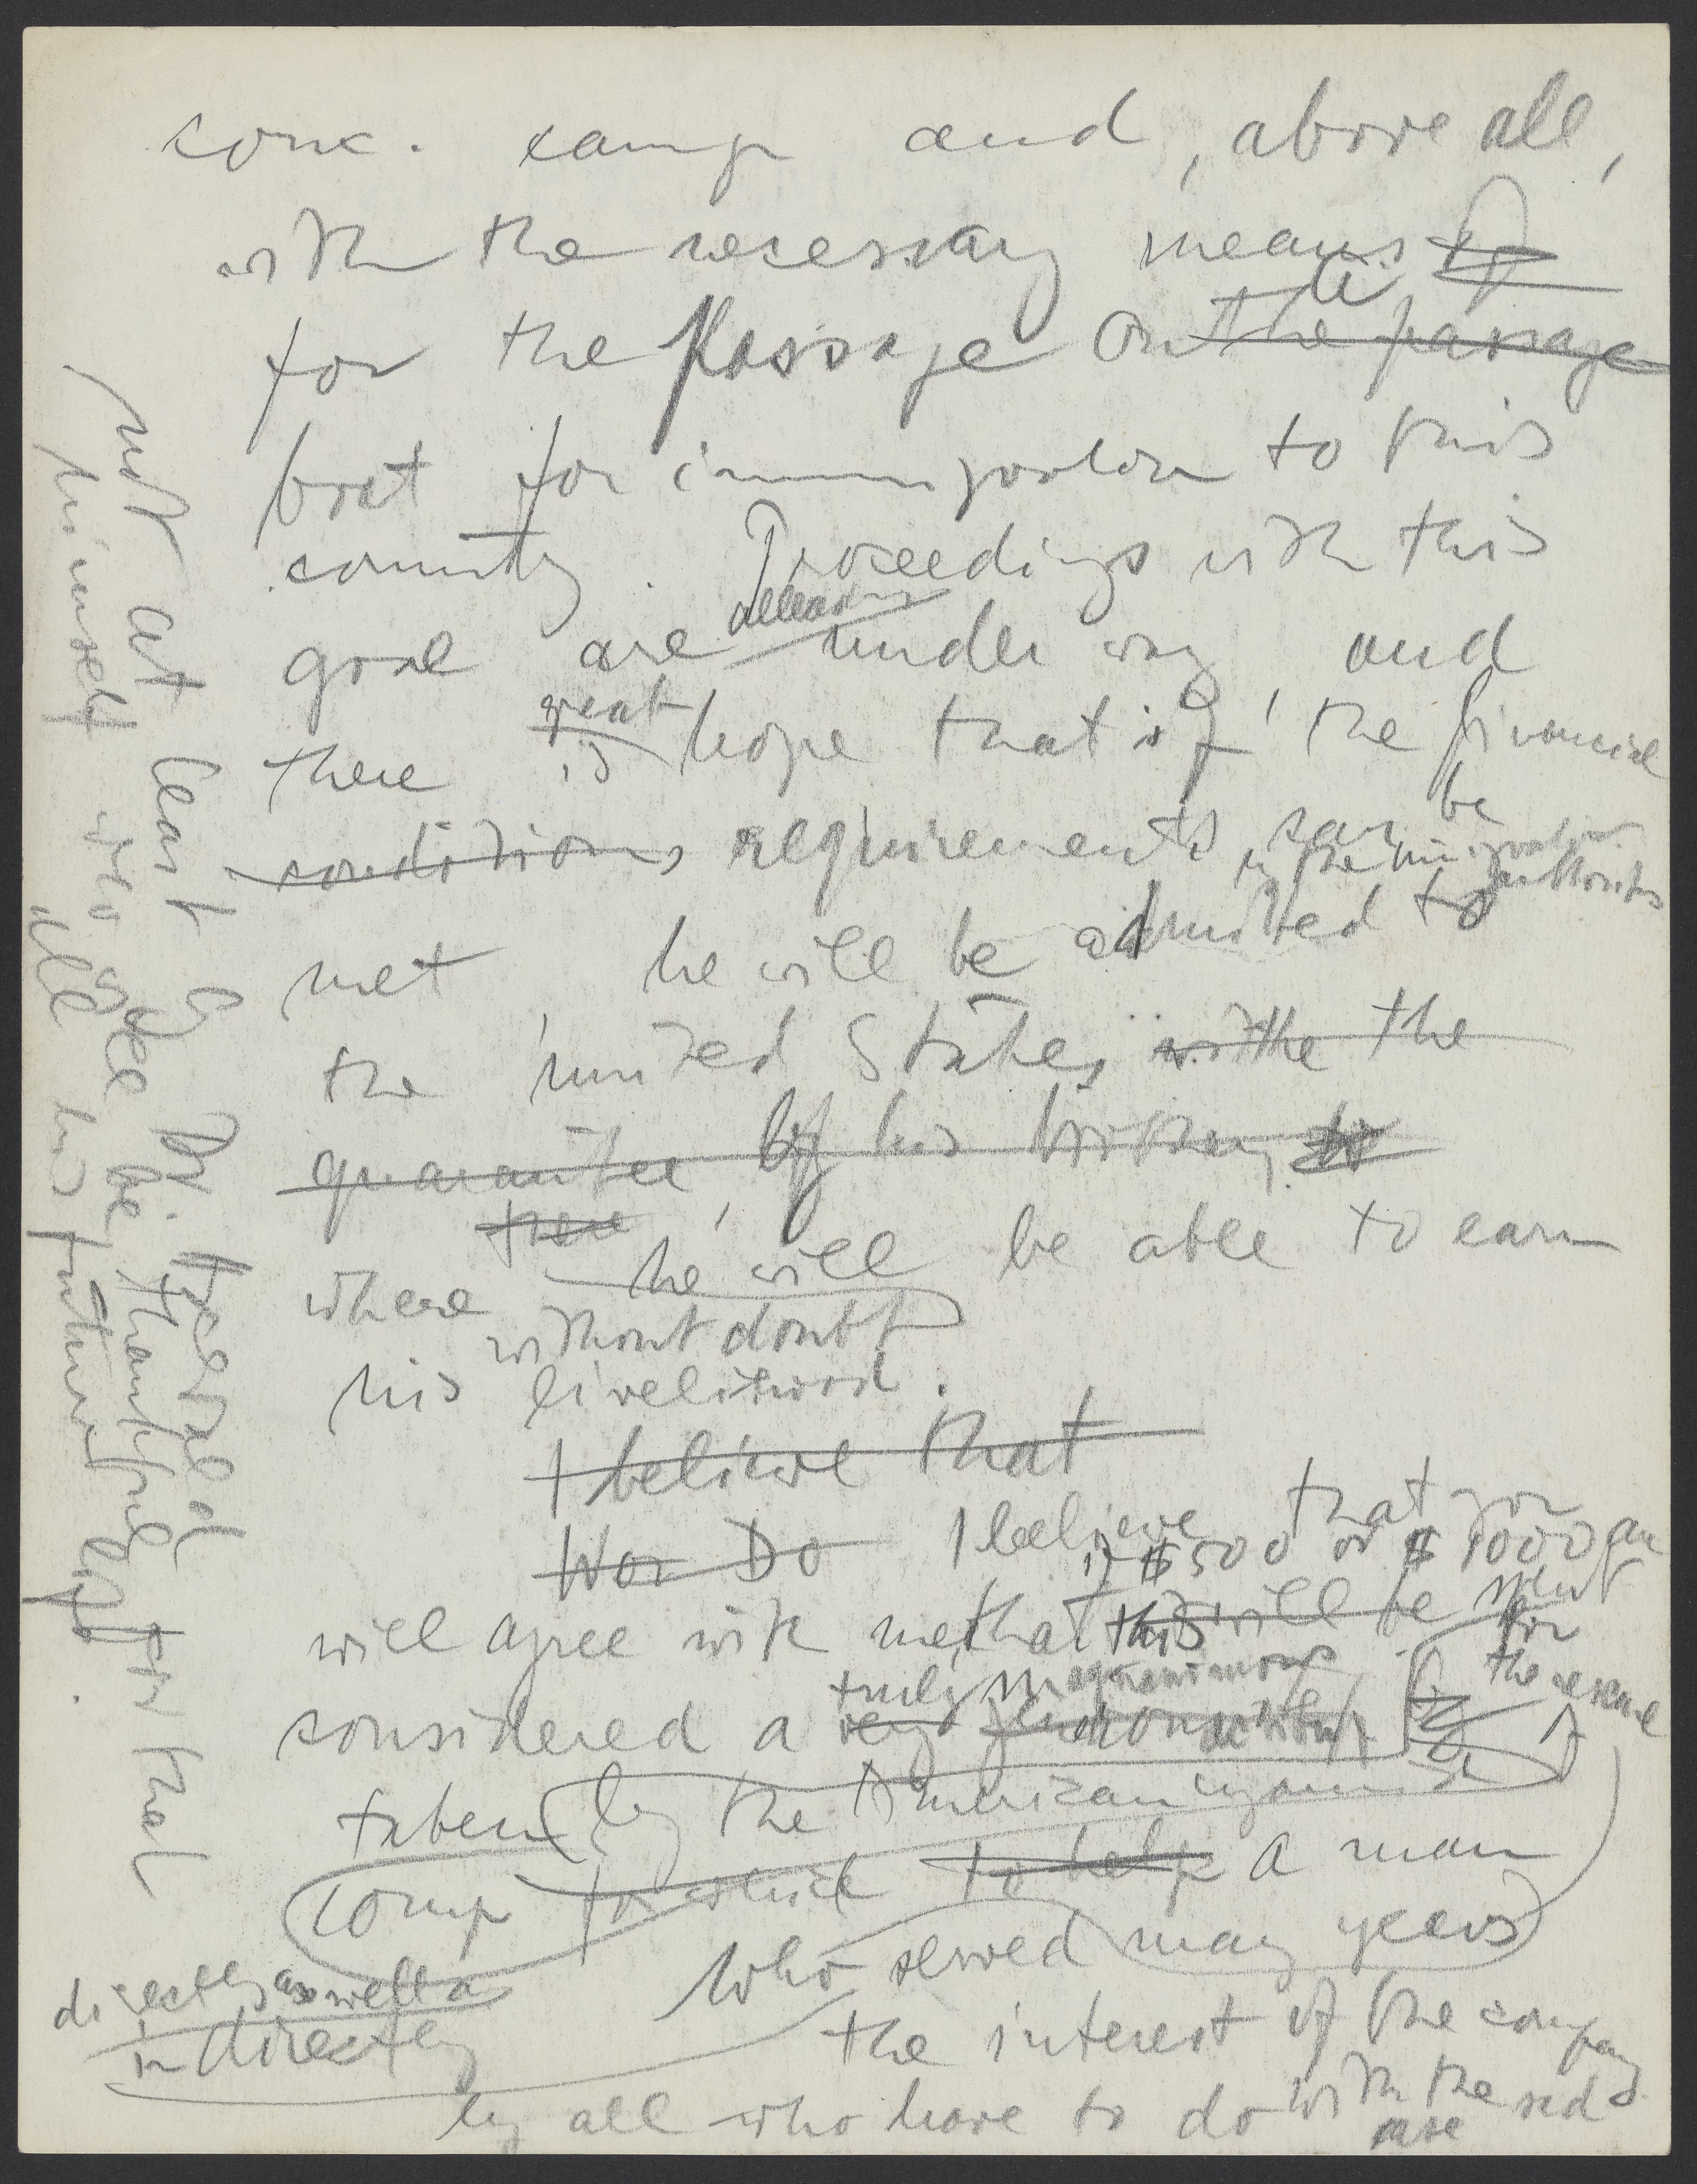 conc. camp and, above all,
with the necessary means of
for the Passage on the the passage
boat for immigration to this
country. Proceedings with this
goal are already under way, and
there is great hope that if, the financial
conditions requirements can be
met he will be admitted to by the immigration authorities
the United States with the the
guarantee of his brother, to
where there, he will be able to earn
without doubt
his livelihood.
I believe that
Wor Do I believe that you
if $ 500 or $ 1000 are
will agree with me, that this will be spent
for the rescue
considered a very truly magnanimous
taken by the American
comp for which to help a man
who served many years
directly as well as
indirectly
the interest of the company
by all who have to do with the sad
case
not at last by Dr. himself, who will be thankful for that
all his future life.